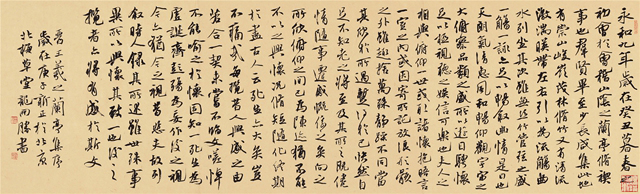 永和九年歲在癸丑暮春之
初會于會稽山陰之蘭亭脩禊
事也群賢畢至少長咸集此地
有崇山峻領茂林脩竹又有清流
激湍暎帶左右引以為流觴曲
水列坐其次雖無絲竹管弦之盛
一觴一詠亦足以暢叙幽情是日也
天朗氣清惠風和暢仰觀宇宙之
大俯察品類之盛所以遊目騁懷
足以極視聽之娛信可樂也夫人之
相與俯仰一世或取諸懷抱晤言
一室之內或因寄所託放浪形骸
之外雖趣舍萬殊靜躁不同當
其欣於所遇暫得於己快然自
足不知老之將至及其所之既倦
情隨事遷感慨係之矣向之
所欣俯仰之間已為陳迹猶不能
不以之興懷況脩短隨化終期
於盡古人云死生亦大矣豈
不痛哉每攬昔人興感之由
若合一契未嘗不臨文嗟悼
不能喻之於懷固知一死生為
虛誕齊彭殤為妄作後之視
今亦猶今之視昔悲夫故列
叙時人錄其所述雖世殊事
異所以興懷其致一也後之
攬者亦將有感於斯文
晉王羲之蘭亭集序
歲在庚子新正於北京
草堂龍開勝書